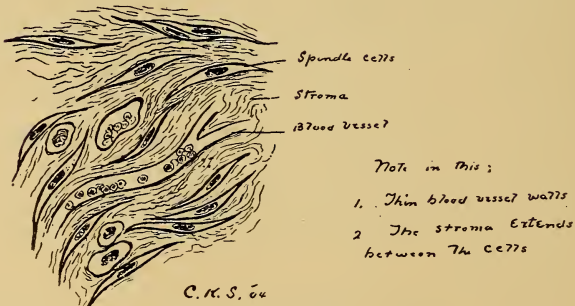 Spindle cells
Stroma
Blood vessel
Note in this:
1. Thin blood vessel walls
2 The stroma Extends
between The cells
C.K.S. '04